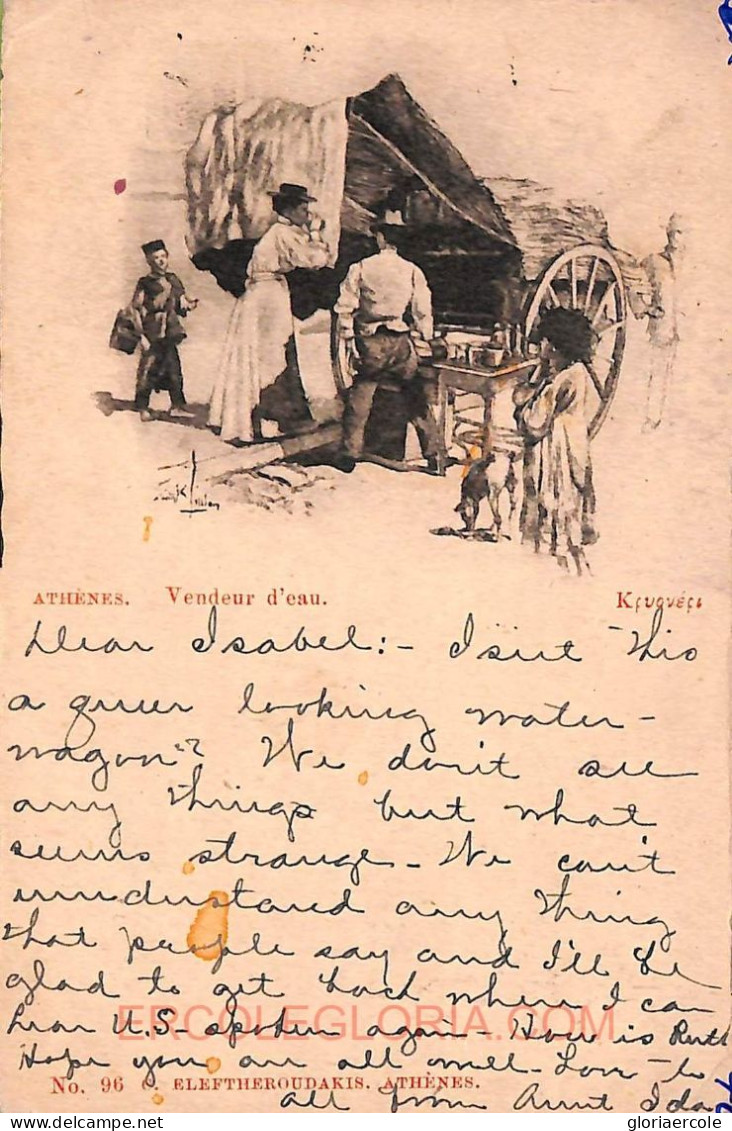 ATHÈNES. Vendeur d'eau. Κρυονέρι
Dear Isabel:- Isn't this
a queer looking water-
wagon"? We don't see
any things but what
seems strange - We can't
understand any thing
that people say and I'll be
glad to get back where I can
hear U.S. spoken again - How is Ruth
Hope you are all well - Love to
all from Aunt Ida
No. 96 ELEFTHEROUDAKIS. ATHÈNES.
ERCOLEGLORIA.COM
gloriaercole